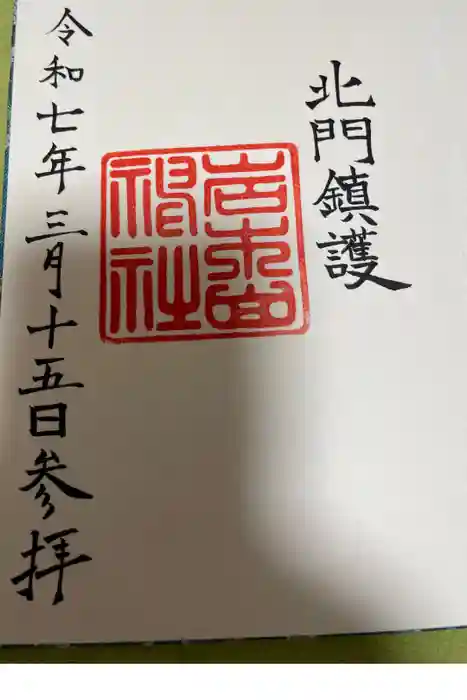 北門鎮護
神社
令和七年三月十五日参拝